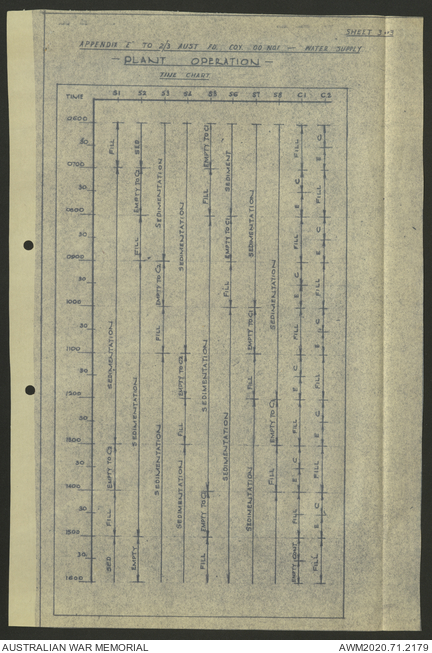 SHEET 3
APPENDIX 'E' TO 2/3 AUST FD COY DO NO1 — WATER SUPPLY
— PLANT OPERATION —
TIME CHART
TIME S1 S2 S3 S4 S5 S6 S7 S8 C1 C2
0600
30
0700
30
0800
30
0900
30
1000
30
1100
30
1200
30
1300
30
1400
30
1500
30
1600
FILL
SEDIMENTATION
EMPTY TO C2
FILL
SED
SED
EMPTY TO C2
FILL
SEDIMENTATION
EMPTY
SEDIMENTATION
EMPTY TO C2
FILL
SEDIMENTATION
SEDIMENTATION
EMPTY TO C2
FILL
SEDIMENTATION
EMPTY TO C1
FILL
SEDIMENTATION
EMPTY TO C1
FILL
SEDIMENT
EMPTY TO C1
FILL
SEDIMENTATION
SEDIMENTATION
EMPTY TO C1
FILL
SEDIMENTATION
SEDIMENTATION
EMPTY TO C1
FILL
FILL
C
E
FILL
C
E
FILL
C
E
FILL
C
E
FILL
C
E
FILL
EMPTY CONT.
C
E
FILL
C
E
FILL
C
E
FILL
C
E
FILL
C
E
FILL
AUSTRALIAN WAR MEMORIAL
AWM2020.71.2179